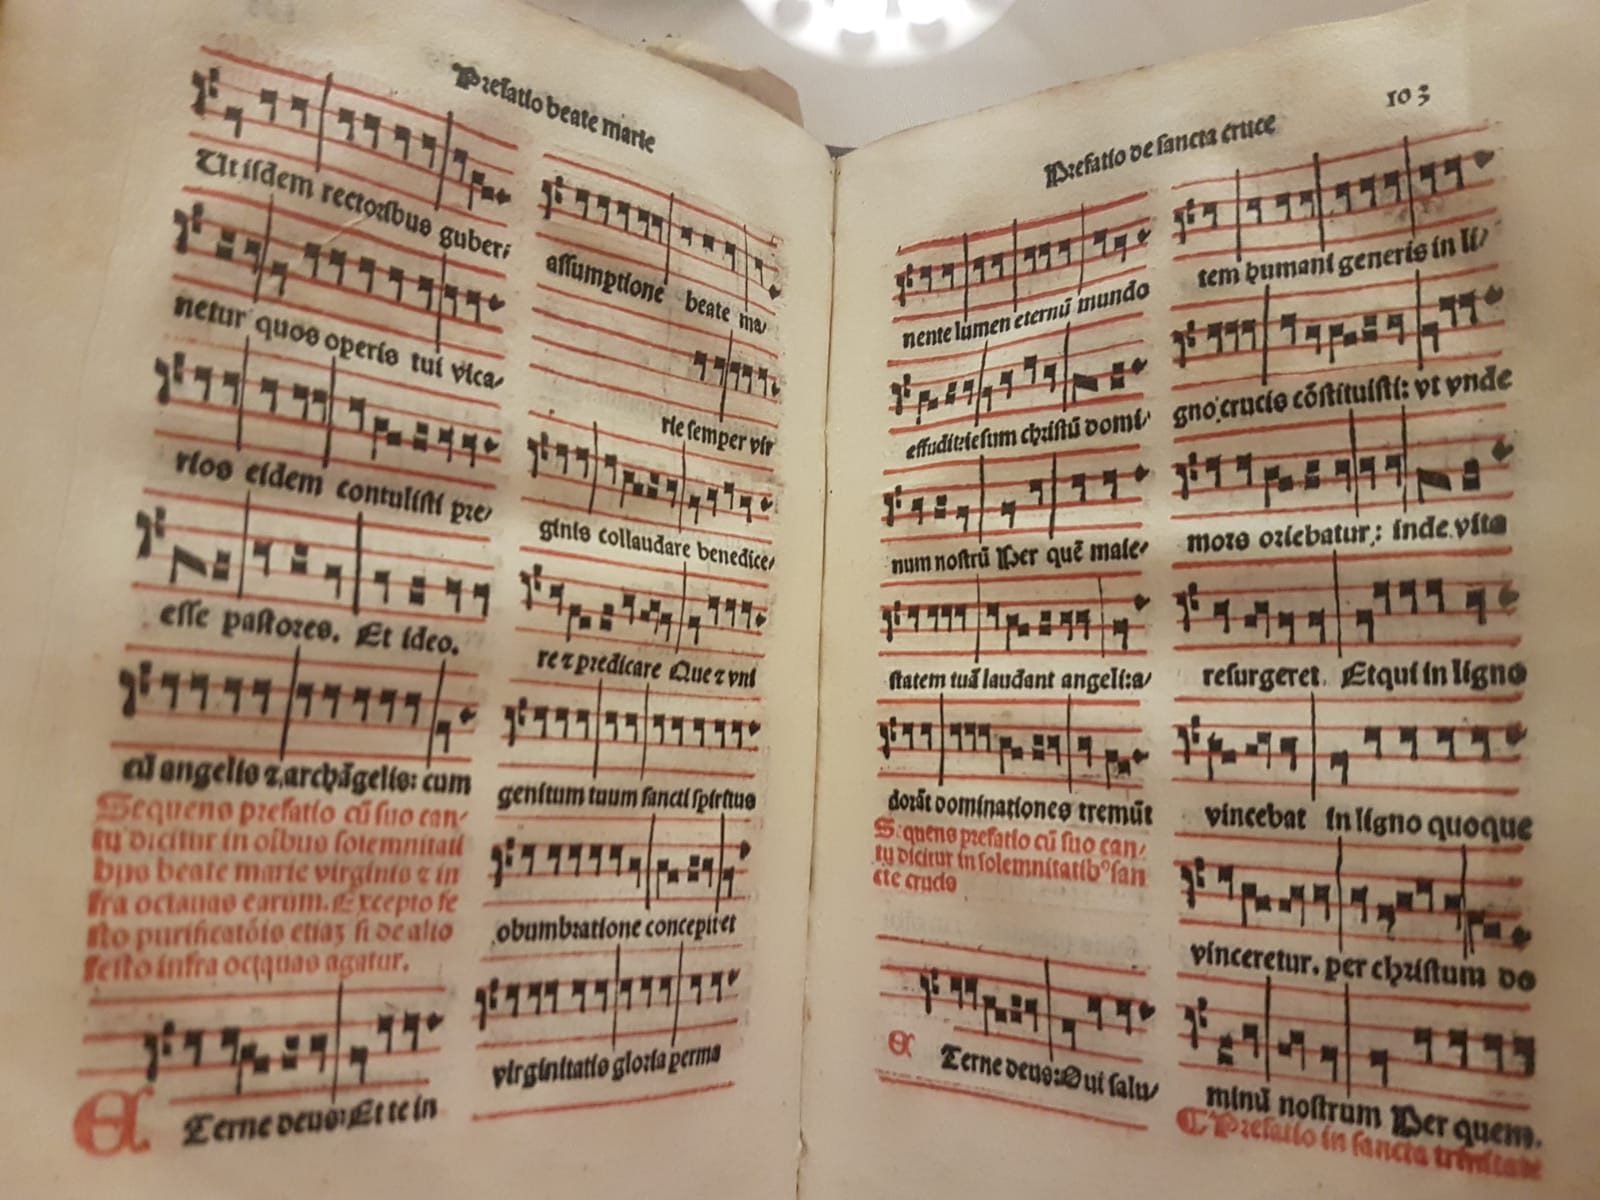 Prefatio beate marie
Ut iisdem rectoribus guber⸗
netur quos operis tui vica⸗
rios eidem contulisti pre⸗
esse pastores. Et ideo.
cū angelis ⁊ archāgelis: cum
Sequens prefatio cū suo can⸗
tu dicitur in oībus solemnitati
bus beate marie virginis ⁊ in
fra octauas earum. Excepto fe
sto purificatōis etiaʒ si de alio
festo infra octauas agatur.
Et
Terne deus: Et te in
assumptione beate ma⸗
rie semper vir
ginis collaudare benedice⸗
re ⁊ predicare Que ⁊ vni
genitum tuum sancti spiritus
obumbratione concepit et
virginitatis gloria perma
Prefatio de sancta cruce
103
nente lumen eternū mundo
effudit: iesum christū domi⸗
num nostrū Per quē maie⸗
statem tuā laudant angeli: a⸗
dorāt dominationes tremūt
Sequens prefatio cū suo can⸗
tu dicitur in solemnitatibꝰ san
cte crucis
E
Terne deus: Qui salu⸗
tem humani generis in li⸗
gno crucis cōstituisti: vt vnde
mors oriebatur: inde vita
resurgeret. Et qui in ligno
vincebat in ligno quoque
vinceretur. per christum do
minū nostrum Per quem.
¶ Prefatio in sancta trinitate